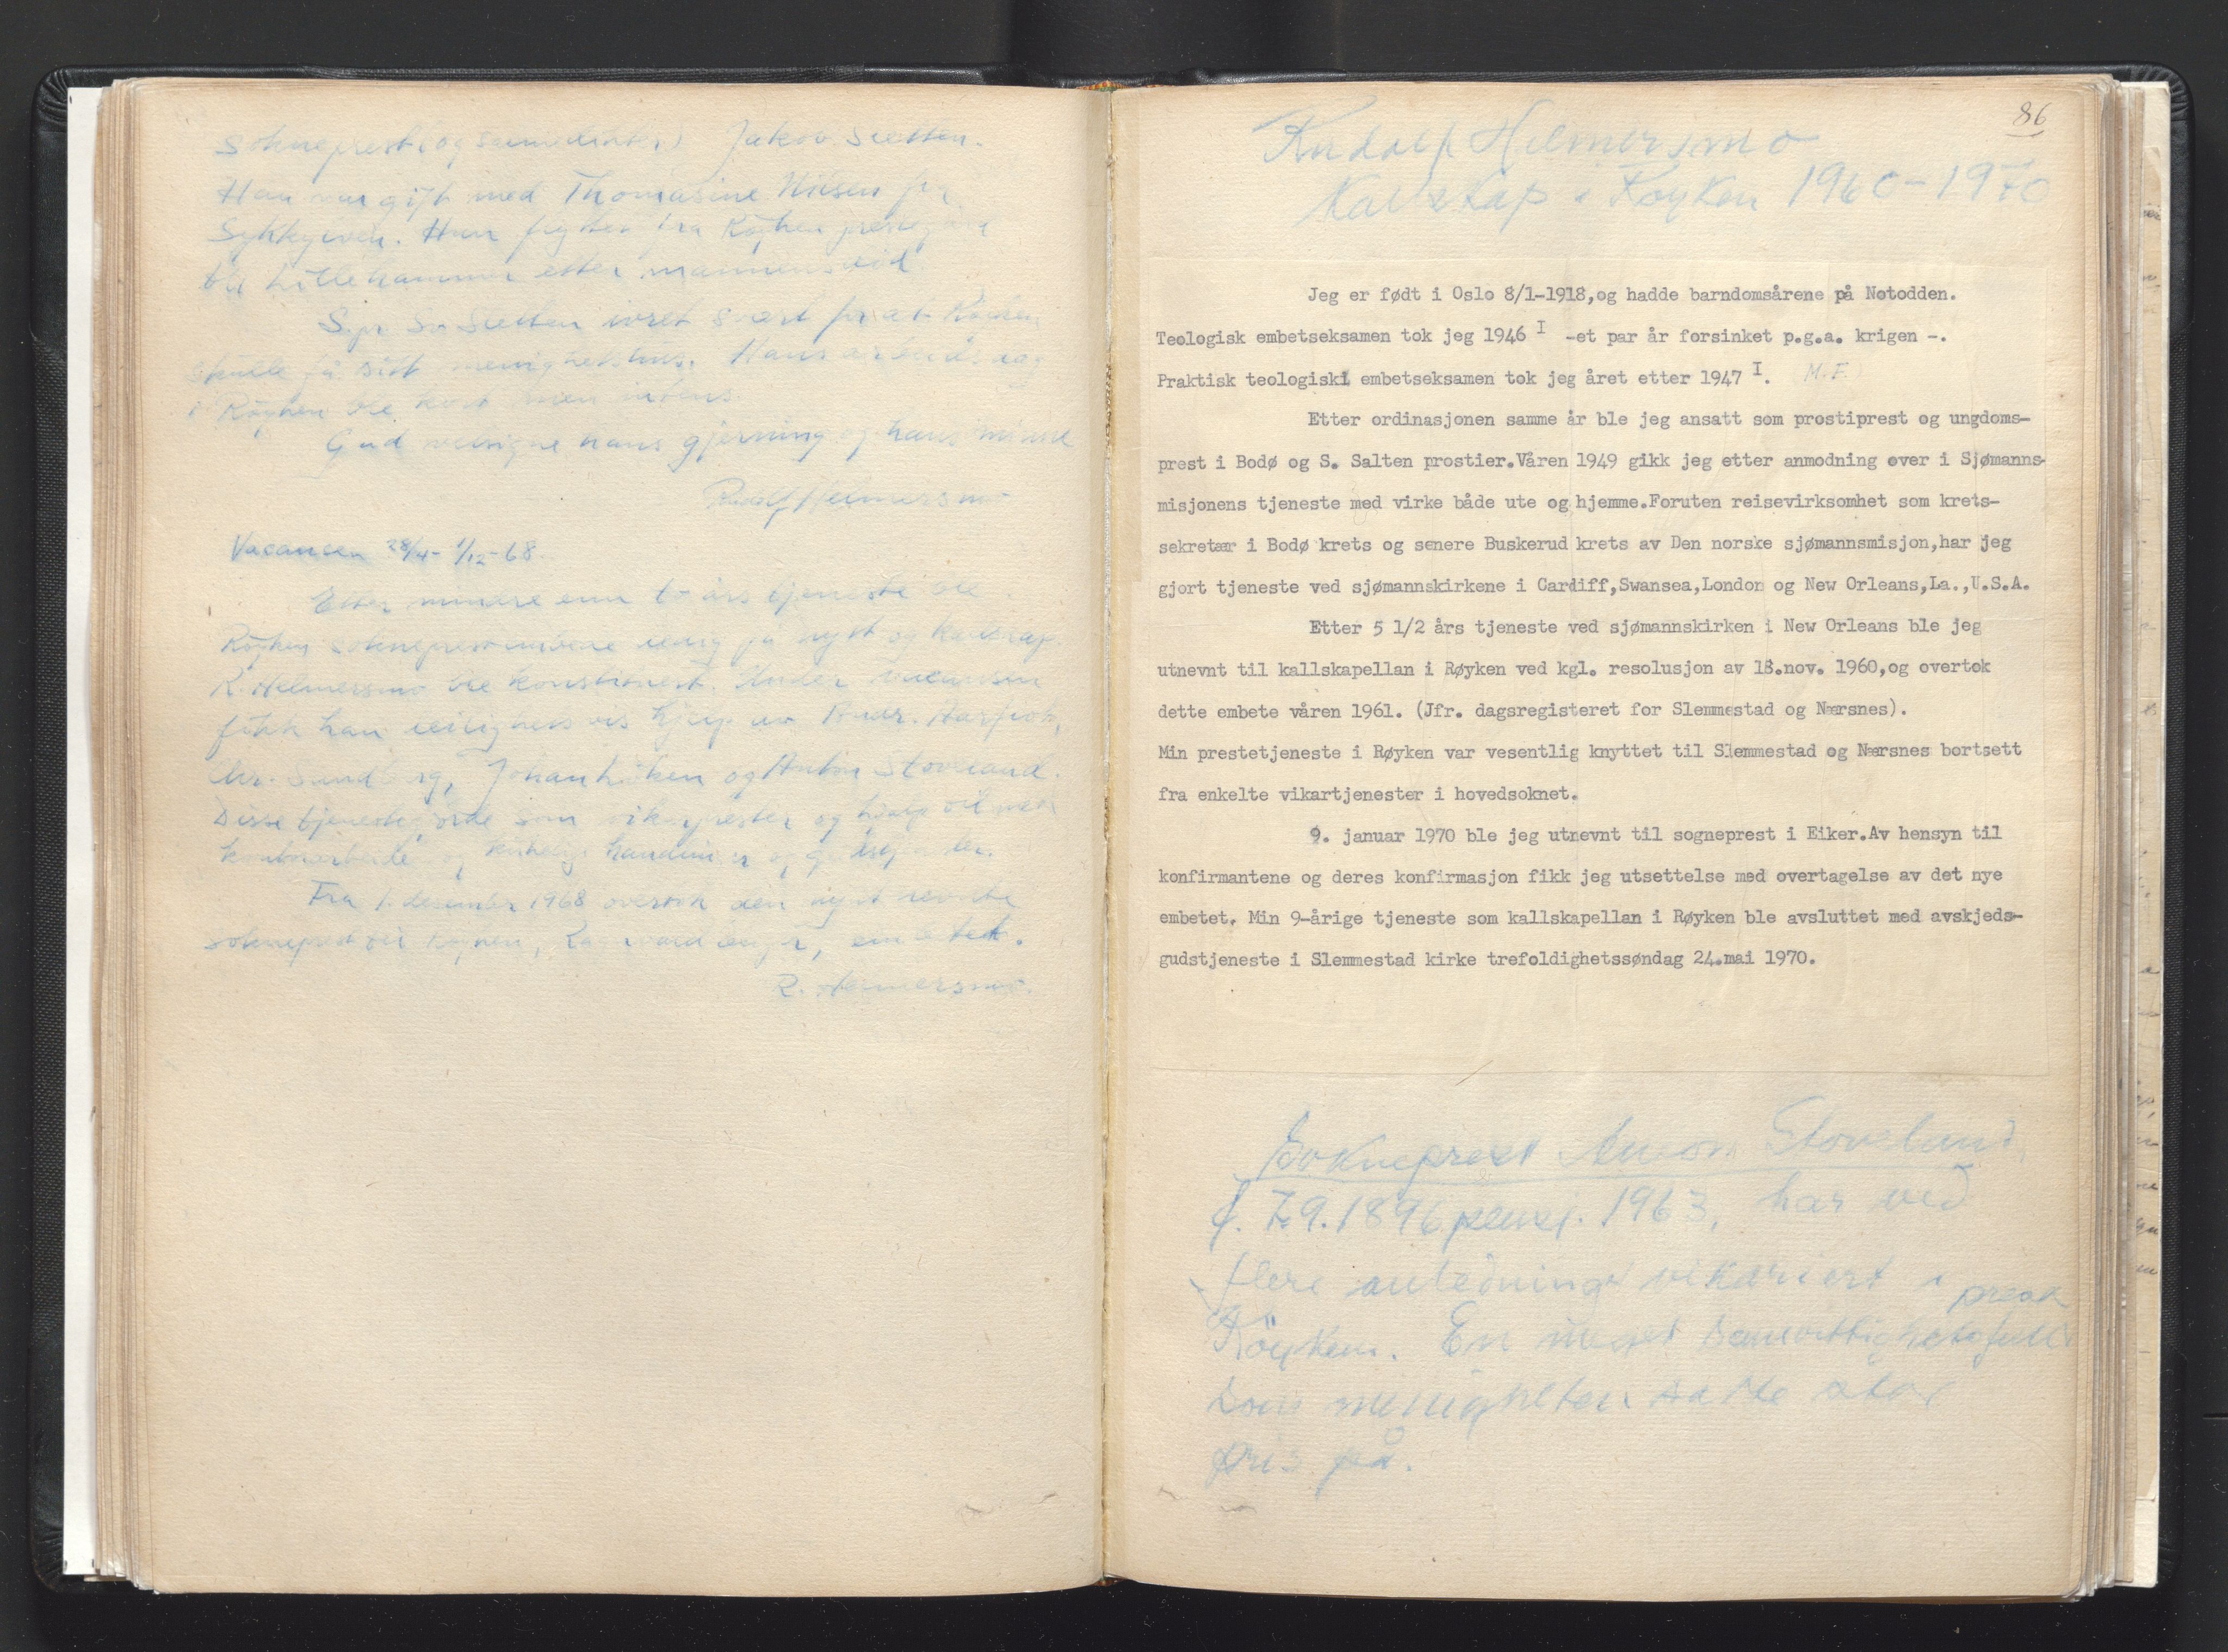 sokneprest (og                 ) Jakov Sletten.
Han var gift med Thomasine Nilsen fra
Sykkylven. Hun flyttet fra Röyken prestegård
til Lillehammer etter mannens död
Spr                ivret svært for at Röyken
skulle få sitt menighetshus. Hans
i Röyken ble kort men intens.
Gud velsigne hans gjerning og hans minne
Rudolf Helmersmo
Vacancen 28/4- 1/12-68.
Etter mindre enn       års tjeneste ble
Röyken sokneprestembete ledig på nytt og kallskap.
R. Helmersmo ble konstituert. Under vacansen
fikk han leilighetsvis hjelp av
Chr. Sundberg, Johan       og Anton Stoveland.
Disse tjenestegjorde som vikarprester og hjalp til med
kontorarbeide og kirkelige handlinger og gudstjenester.
Fra 1. desember 1968 overtok den nyutnevnte
sokneprest til Röyken,                   , embetet.
R. Helmersmo.
86
Rudolf Helmersmo
Kallskap i Røyken 1960-1970
Jeg er født i Oslo 8/1-1918,og hadde barndomsårene på Notodden.
Teologisk embetseksamen tok jeg 1946 I -et par år forsinket p.g.a. krigen -.
Praktisk teologiski embetseksamen tok jeg året etter 1947 I. M.F.
Etter ordinasjonen samme år ble jeg ansatt som prostiprest og ungdoms-
prest i Bodø og S. Salten prostier.Våren 1949 gikk jeg etter anmodning over i Sjømanns-
misjonens tjeneste med virke både ute og hjemme.Foruten reisevirksomhet som krets-
sekretær i Bodø krets og senere Buskerud krets av Den norske sjømannsmisjon,har jeg
gjort tjeneste ved sjømannskirkene i Cardiff,Swansea,London og New Orleans,La.,U.S.A.
Etter 5 1/2 års tjeneste ved sjømannskirken i New Orleans ble jeg
utnevnt til kallskapellan i Røyken ved kgl. resolusjon av 18.nov. 1960,og overtok
dette embete våren 1961. (Jfr. dagsregisteret for Slemmestad og Nærsnes).
Min prestetjeneste i Røyken var vesentlig knyttet til Slemmestad og Nærsnes bortsett
fra enkelte vikartjenester i hovedsoknet.
9. januar 1970 ble jeg utnevnt til sogneprest i Eiker.Av hensyn til
konfirmantene og deres konfirmasjon fikk jeg utsettelse med overtagelse av det nye
embetet. Min 9-årige tjeneste som kallskapellan i Røyken ble avsluttet med avskjeds-
gudstjeneste i Slemmestad kirke trefoldighetssøndag 24.mai 1970.
Sokneprest Anton Stoveland
f. 7.9.1896 pensj. 1963, har ved
flere anledninger vikariert i
Röyken. En meget samvittighetsfull prest
som menigheten satte stor
pris på.